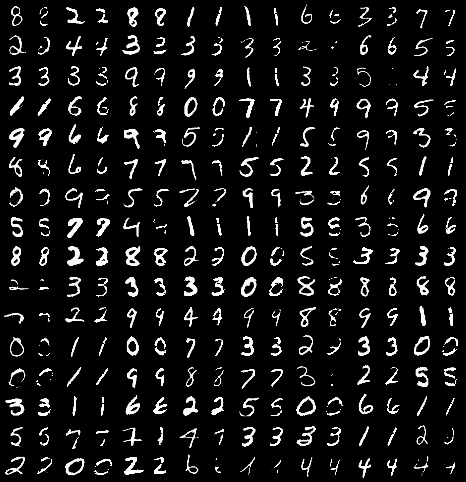 8 8 2 2 8 8 1 1 1 1 6 6 3 3 7 7
2 2 4 4 3 3 3 3 3 3 6 6 5 5
3 3 3 3 9 9 9 9 1 1 3 3 5 4 4
1 1 6 6 8 8 0 0 7 7 4 9 9 9 5 5
9 9 6 6 9 7 5 5 1 1 5 5 9 9 3 3
8 8 6 6 7 7 7 7 5 5 2 2 5 5 1 1
0 0 9 9 5 5 7 7 9 9 3 3 6 6 9 9
5 5 7 7 4 4 1 1 1 1 5 5 3 5 6 6
8 8 2 2 8 8 2 2 0 0 5 5 3 3 3 3
2 2 3 3 3 3 3 3 0 0 8 8 8 8 8 8
7 7 2 2 9 9 4 4 9 9 8 8 9 9 1 1
0 0 1 1 0 0 7 7 3 3 2 2 3 3 0 0
0 0 1 1 9 9 8 8 7 7 3 2 2 5 5
3 3 1 1 6 6 2 2 5 5 0 0 6 6 1 1
5 5 7 7 7 1 4 9 3 3 3 3 1 1 2 2
2 2 0 0 2 2 6 1 1 4 4 4 4 4 4